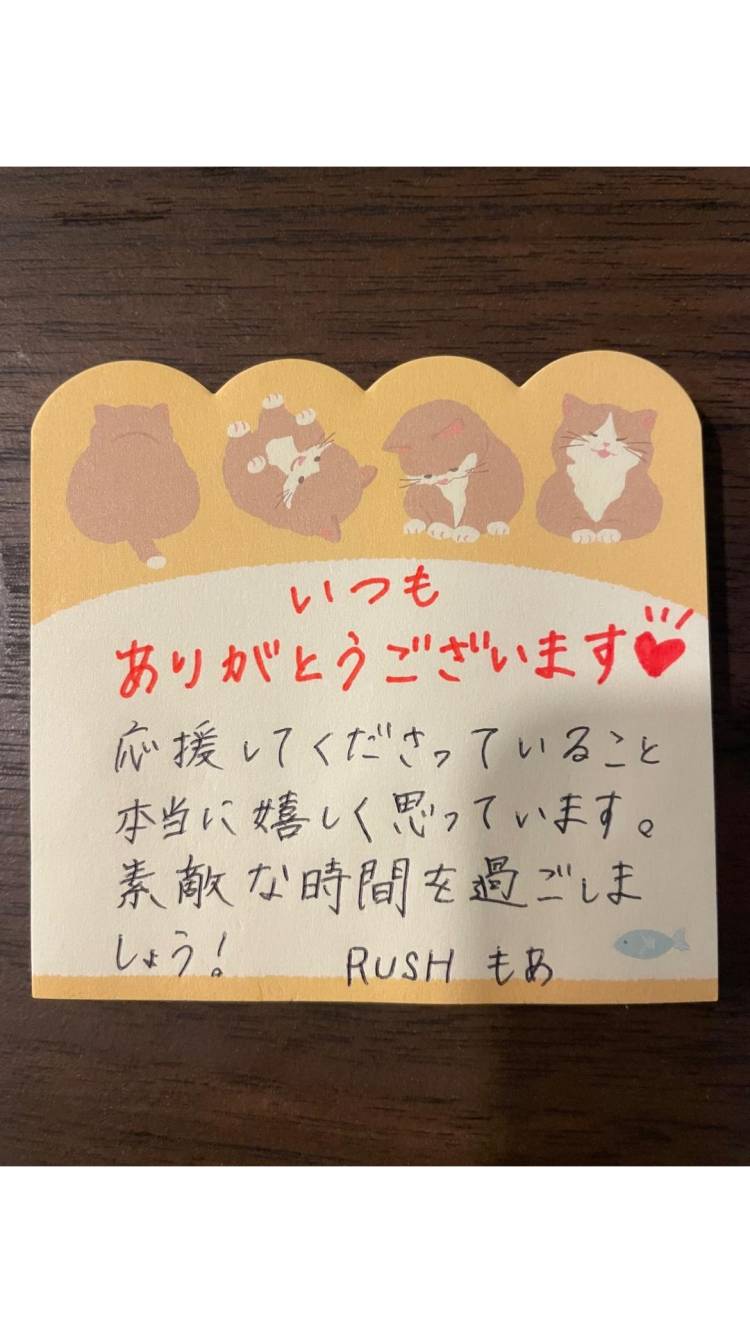 いつも
ありがとうございます♥
応援してくださっていること
本当に嬉しく思っています。
素敵な時間を過ごしま
しょう！ RUSH もあ